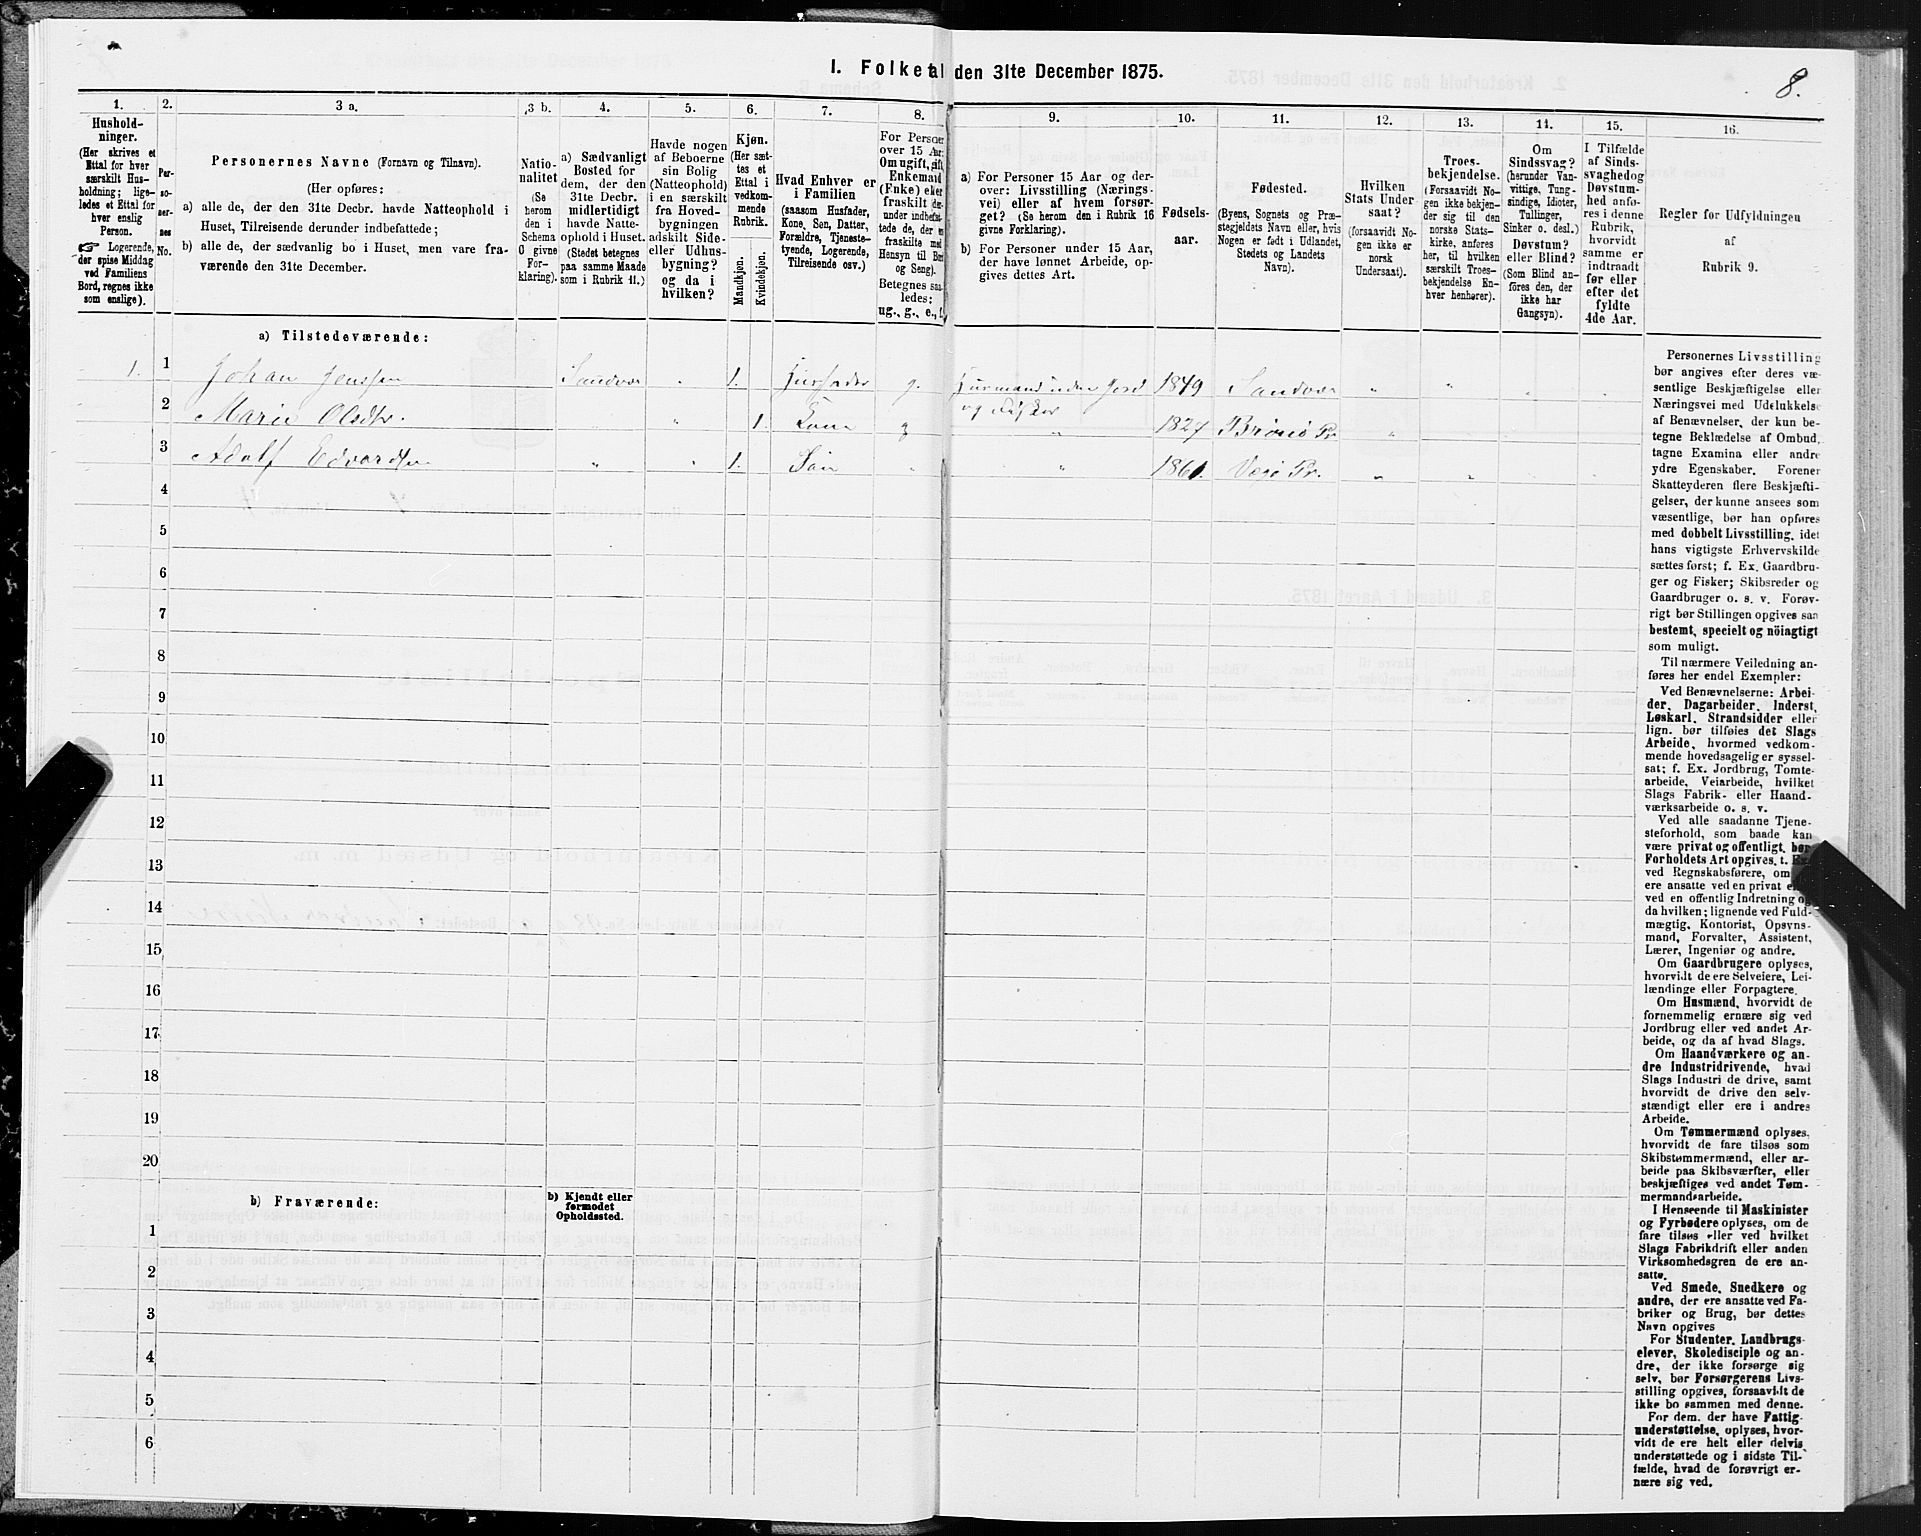 I. Folketal den 31te December 1875.
8.
1.
2.
3 a.
3 b.
4.
5.
6.
7.
8.
9.
10.
11.
12.
13.
14.
15.
16.
Hushold-
ninger.
(Her skrives et
Ettal for hver
særskilt Hus-
holdning; lige-
ledes et Ettal for
hver enslig
Person.
☞ Logerende,
der spise Middag
ved Familiens
Bord, regnes ikke
som enslige).
Per-
so-
ner-
nes
No.
Personernes Navne (Fornavn og Tilnavn).
(Her opføres:
a) alle de, der den 31te Decbr. havde Natteophold i
Huset, Tilreisende derunder indbefattede;
b) alle de, der sædvanlig bo i Huset, men vare fra-
værende den 31te December.
Natio-
nalitet
(Se
herom
den i
Schema
O givne
For-
klaring).
a) Sædvanligt
Bosted for
dem, der den
31te Decbr.
midlertidigt
havde Natte-
ophold i Huset.
(Stedet betegnes
paa samme Maade
som i Rubrik 11.)
Havde nogen
af Beboerne
sin Bolig
(Natteophold)
i en særskilt
fra Hoved-
bygningen
adskilt Side-
eller Udhus-
bygning?
og da i
hvilken?
Kjøn.
(Her sæt-
tes et
Ettal i
vedkom-
mende
Rubrik.
Mandkjøn.
Kvindekjøn.
Hvad Enhver er
i Familien
(saasom Husfader,
Kone, Søn, Datter,
Forældre, Tjeneste-
tyende, Logerende,
Tilreisende osv.)
For Personer
over 15 Aar:
Om ugift, gift,
Enkemand
(Enke) eller
fraskilt
Betegnes saa-
ledes:
ug., g., e., f.
a) For Personer 15 Aar og der-
over: Livsstilling (Nærings-
vei) eller af hvem forsør-
get? (Se herom den i Rubrik 16
givne Forklaring).
b) For Personer under 15 Aar,
der have lønnet Arbeide, op-
gives dettes Art.
Fødsels-
aar.
Fødested.
(Byens, Sognets og Præ-
stegjeldets Navn eller, hvis
Nogen er født i Udlandet,
Stedets og Landets
Navn).
Hvilken
Stats Under-
saat?
(forsaavidt No-
gen ikke er
norsk
Undersaat).
Troes-
bekjendelse.
(Forsaavidt No-
gen ikke bekjen-
der sig til den
norske Stats-
kirke, anføres
her, til hvilken
særskilt Troes-
bekjendelse En-
hver henhører).
Om
Sindssvag?
(herunder Van-
vittige, Tung-
sindige, Idioter,
Tullinger,
Sinker o. desl.)
Døvstum?
eller Blind?
(Som Blind an-
føres den, der
ikke har
Gangsyn).
I Tilfælde
af Sinds-
svaghed og
Døvstum-
hed anfø-
res i denne
Rubrik,
hvorvidt
samme er
indtraadt
før eller
efter det
fyldte
4de Aar.
Regler for Udfyldningen
af
Rubrik 9.
a) Tilstedeværende:
1. 1 Johan Jenssen Sandvær " 1. Husfader g. Husmand uden Jord og Fisker 1849 Sandvær " " " "
2 Marie Olsdtr. " 1. Kone g " 1827 Brønø Pr. "
3 Adolf Edvardsen " " 1. Søn " " 1861. Vegø Pr. " " " "
4
5
6
7
8
9
10
11
12
13
14
15
16
17
18
19
20
b) Fraværende:
b) Kjendt eller
formodet
Opholdssted.
1
2
3
4
5
6
Personernes Livsstilling
bør angives efter deres væ-
sentlige Beskjæftigelse eller
Næringsvei med Udelukkelse
af Benævnelser, der kun be-
tegne Beklædelse af Ombud,
tagne Examina eller andre
ydre Egenskaber. Forener
Skatteyderen flere Beskjæfti-
gelser, der kunne ansees som
væsentlige, bør han opføres
med dobbelt Livsstilling, idet
hans vigtigste Erhvervskilde
sættes først; f. Ex. Gaardbru-
ger og Fisker; Skibsreder og
Gaardbruger o. s. v. Forøv-
rigt bør Stillingen opgives saa
bestemt, specielt og nöiagtigt
som muligt.
Til nærmere Veiledning an-
føres her endel Exempler:
Ved Benævnelserne: Arbei-
der, Dagarbeider, Inderst,
Løskarl, Strandsidder eller
lign. bør tilføies det Slags
Arbeide, hvormed vedkom-
mende hovedsagelig er syssel-
sat; f. Ex. Jordbrug, Tomte-
arbeide, Veiarbeide, hvilket
Slags Fabrik- eller Haand-
værksarbeide o. s. v.
Ved alle saadanne Tjene-
steforhold, som baade kan
være privat og offentligt, bør
Forholdets Art opgives, t. Ex.
ved Regnskabsførere, om
ere ansatte ved en privat
ved en offentlig Indretning og
da hvilken; lignende ved Fuld-
mægtig, Kontorist, Opsyns-
mand, Forvalter, Assistent,
Lærer, Ingeniør og andre.
Om Gaardbrugere oplyses,
hvorvidt de ere Selveiere, Lei-
lændinge eller Forpagtere.
Om Husmænd, hvorvidt de
fornemmelig ernære sig ved
Jordbrug eller ved andet Ar-
beide, og da af hvad Slags.
Om Haandværkere og an-
dre Industridrivende, hvad
Slags Industri de drive, samt
hvorvidt de drive den selv-
stændigt eller ere i andres
Arbeide.
Om Tømmermænd oplyses,
hvorvidt de fare tilsøs som
Skibstømmermænd, eller ar-
beide paa Skibsværfter, eller
beskjæftiges ved andet Tøm-
mermandsarbeide.
I Henseende til Maskinister
og Fyrbødere oplyses, om de
fare tilsøs eller ved hvilket
Slags Fabrikdrift eller anden
Virksomhedsgren de ere an-
satte.
Ved Smede, Snedkere og
andre, der ere ansatte ved Fa-
briker og Brug, bør dettes
Navn opgives
For Studenter, Landbrugs-
elever, Skoledisciple og an-
dre, der ikke forsørge sig
selv, bør Forsørgerens Livs-
stilling opgives, forsaavidt de
ikke bo sammen med denne.
For dem, der have Fattig-
understøttelse, oplyses, hvor-
vidt de ere helt eller delvis
understøttede og i sidste Til-
fælde, hvad de forøvrigt er-
nære sig ved.